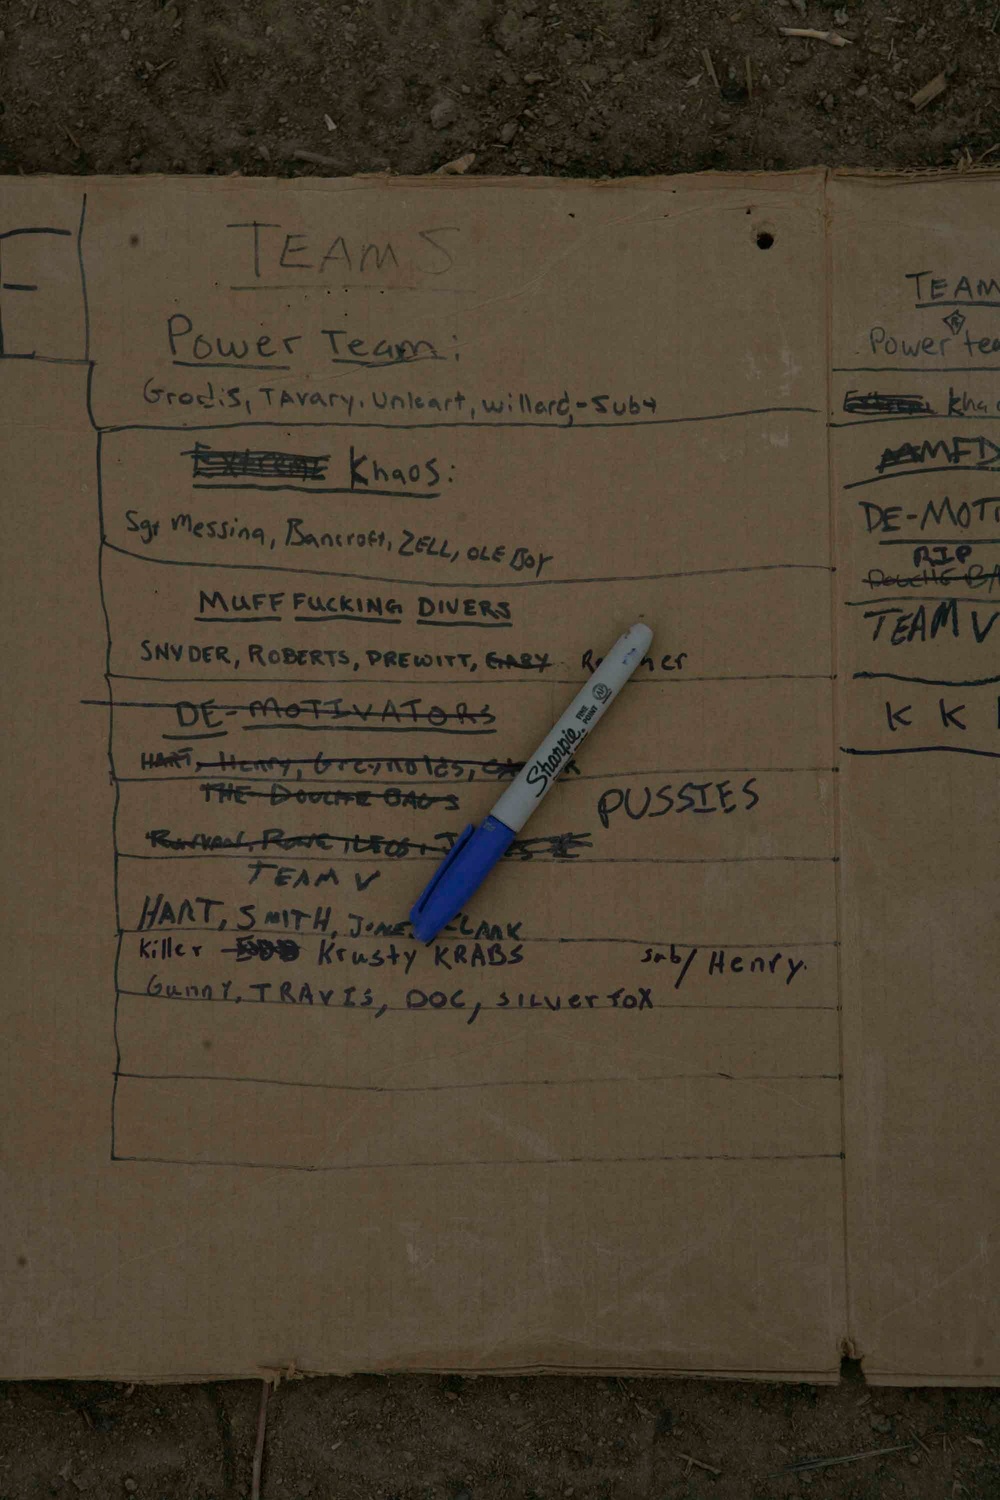 TEAMS
Power Team:
Grodis, TAvary, Unleart, willard,-Sub
Khaos:
Sgt Messina, Bancroft, ZELL, OLE BOY
MUFF FUCKING DIVERS
SNYDER, ROBERTS, PREWITT, GARY
DE-MOTIVATORS
HART, Henry, Greynolds,
THE DOUCHE BAGS
PUSSIES
TEAM V
HART, SMITH, CLARK
Killer Krusty KRABS
sub/ Henry.
Gunny, TRAVIS, DOC, SILVER FOX
Sharpie
FINE
POINT
AP
TEAM
Power tea
Kha
MFD
DE-MOTI
RIP
DOUCHE BA
TEAM V
K K